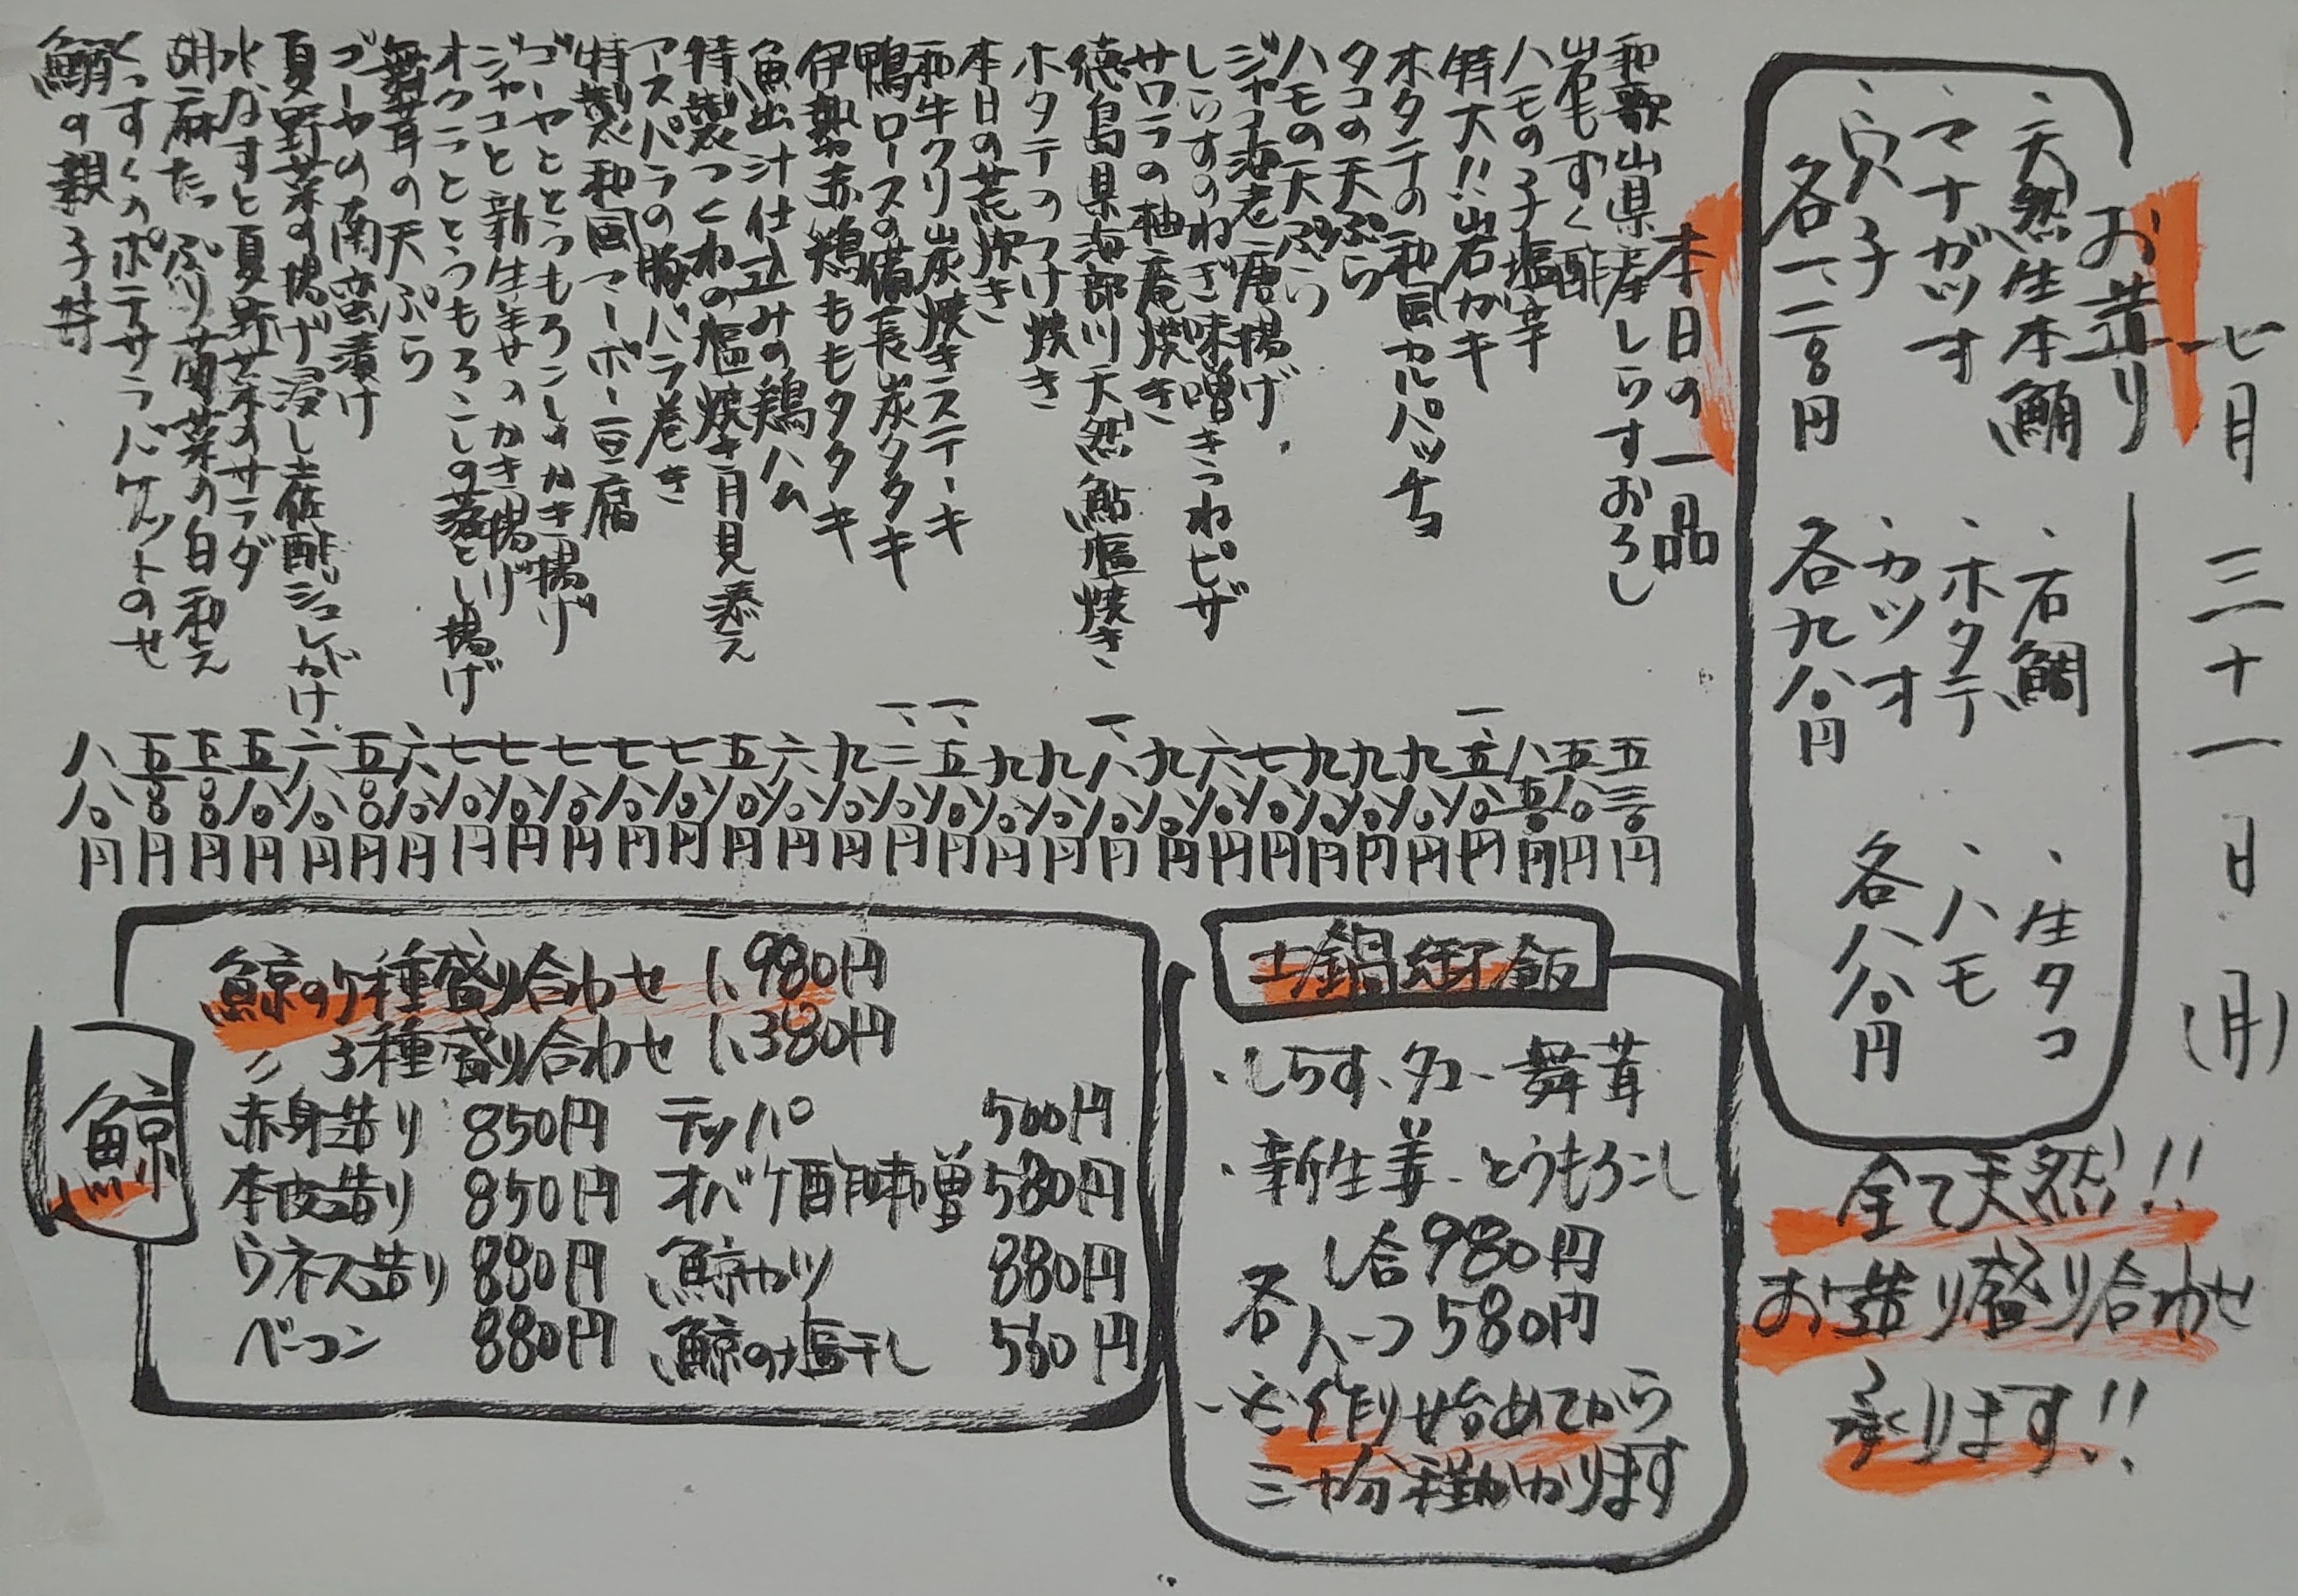 七月三十一日(月)
お造り
・天然生本鮪
・マナガツオ
・穴子
各一、二八〇円
・石鯛
・ホタテ
・カツオ
各九八〇円
・生タコ
・ハモ
各八八〇円
全て天然!!
お造り盛り合わせ
承ります!!
本日の一品
和歌山県産しらすおろし 五三〇円
岩もずく酢 五八〇円
ハモの子塩辛 八五〇円
特大!!岩ガキ 一、五八〇円
ホタテの和風カルパッチョ 九八〇円
タコの天ぷら 九八〇円
ハモの天ぷら 九八〇円
ジャコ海老唐揚げ 七八〇円
しらすのねぎ味噌きつねピザ 六八〇円
サワラの柚庵焼き 九八〇円
徳島県海部川天然鮎塩焼き 一、八八〇円
ホタテのつけ焼き 九八〇円
本日の荒炊き 九八〇円
和牛クリ炭焼きステーキ 一、五八〇円
鴨ロースの備長炭タタキ 一、二八〇円
伊勢赤鶏ももタタキ 九八〇円
魚出汁仕込みの鶏ハム 六八〇円
特製つくねの塩焼き月見添え 五八〇円
アスパラの豚バラ巻き 七八〇円
特製和風マーボー豆腐 七八〇円
ゴーヤととうもろこしのかき揚げ 七八〇円
ジャコと新生姜のかき揚げ 七八〇円
オクラととうもろこしの落とし揚げ 七八〇円
舞茸の天ぷら 六八〇円
ゴーヤの南蛮漬け 五〇〇円
夏野菜の揚げ浸し土佐酢ジュレがけ 六八〇円
水なすと夏野菜のサラダ 五八〇円
胡麻たっぷり菊菜の白和え 五〇〇円
くっすくのポテサラバケットのせ 五〇〇円
鮪の親子丼 八八〇円
土鍋御飯
・しらす・タコ・舞茸
・新生姜・とうもろこし
各 1合980円
人一つ580円
・炊作り始めてから
三十分程かかります
鯨
鯨の7種盛り合わせ 1,980円
〃 3種盛り合わせ 1,380円
赤身造り 850円 テッパ 500円
本皮造り 850円 オバケ酢味噌 580円
ウネス造り 880円 鯨カツ 880円
ベーコン 880円 鯨の塩干し 560円